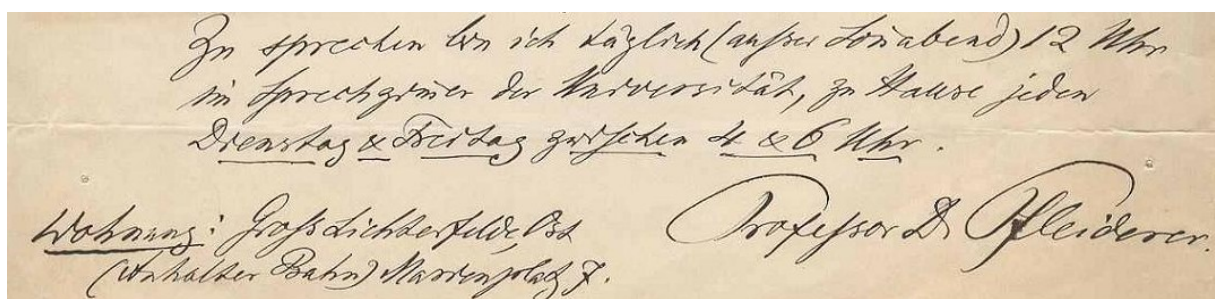 Zu sprechen bin ich täglich (außer Sonnabend) 12 Uhr
im Sprechzimmer der Universität, zu Hause jeden
Dienstag & Freitag zwischen 4 & 6 Uhr.
Wohnung: Groß Lichterfelde, Ost
(Anhalter Bahn) Marienplatz 7.
Professor D. Pfleiderer.